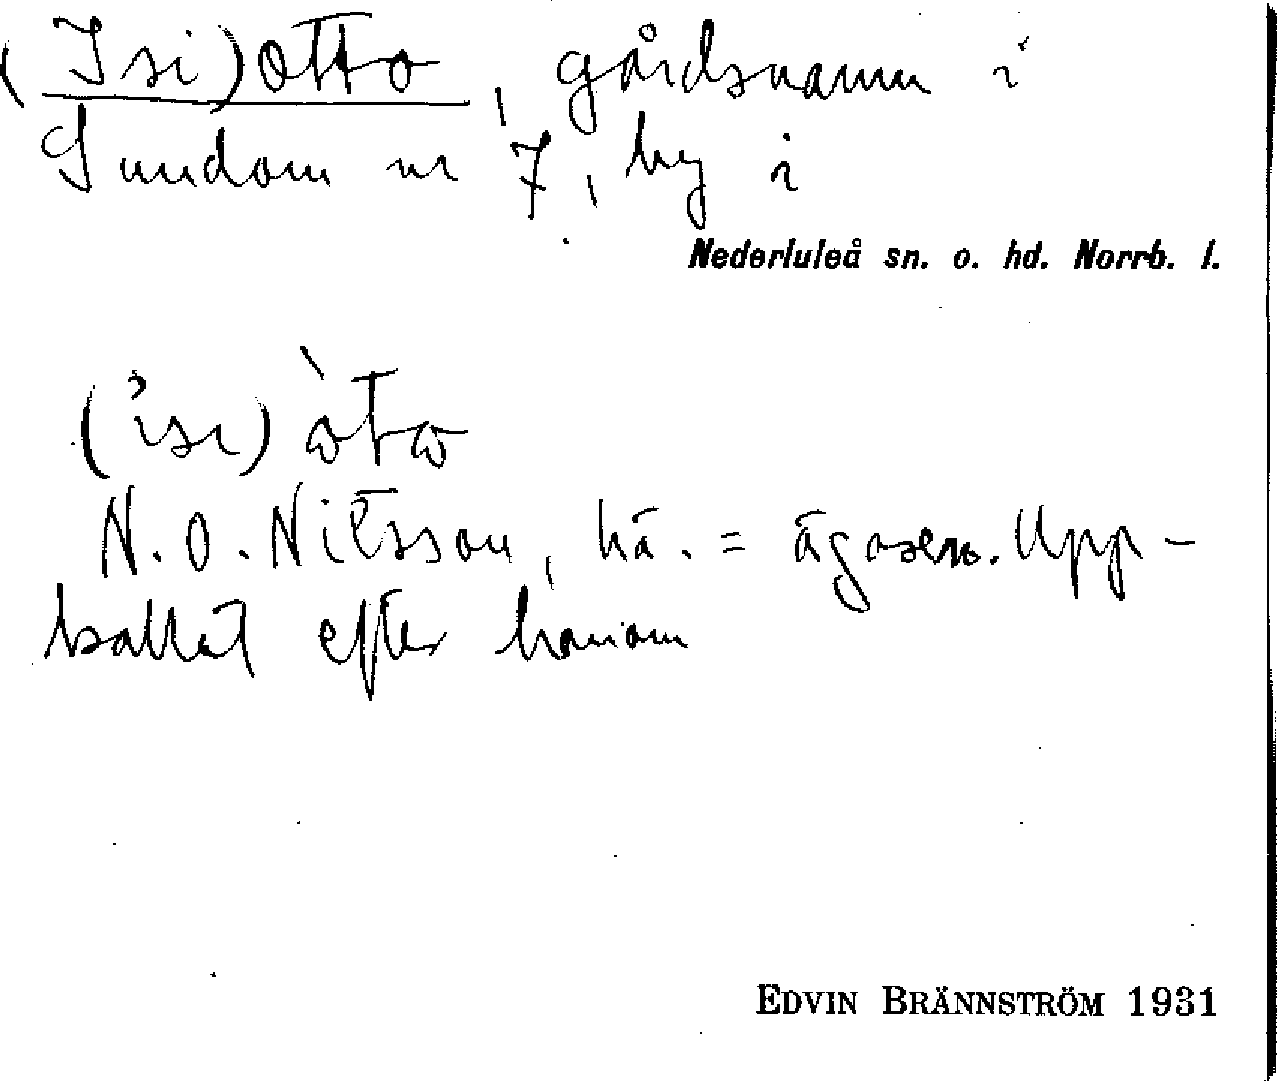 (Isi)otto, gårdsnamn i
Sundom nr 7, by i
Nederluleå sn. o. hd. Norrb. l.
N. O. Nilsson, hä. = ägaren. Upp-
kallat efter honom
EDVIN BRÄNNSTRÖM 1931